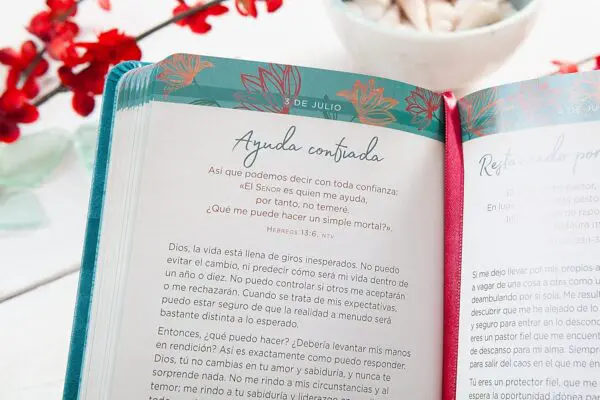 3 DE JULIO
Ayuda confiada
Así que podemos decir con toda confianza:
«El SEÑOR es quien me ayuda,
por tanto, no temeré.
¿Qué me puede hacer un simple mortal?».
HEBREOS 13:6, NTV
Dios, la vida está llena de giros inesperados. No puedo
evitar el cambio, ni predecir cómo será mi vida dentro de
un año o diez. No puedo controlar si otros me aceptarán
o me rechazarán. Cuando se trata de mis expectativas,
puedo estar seguro de que la realidad a menudo será
bastante distinta a lo esperado.
Entonces, ¿qué puedo hacer? ¿Debería levantar mis manos
en rendición? Así es exactamente como puedo responder.
Dios, tú no cambias en tu amor y sabiduría, y nunca te
sorprende nada. No me rindo a mis circunstancias y al
temor; me rindo a tu sabiduría y liderazgo
DE JULIO
Restaurado por
pastor,
En lug
pasto
reposo
Si me dejo llevar por mis propios
a vagar de una cosa a otra, como
deambulando por sí sola. Me resul
descubrir que me he alejado de lo
y seguro para entrar en lo descono
eres un pastor fiel que me encuent
de descanso para mi alma. Siempre
para salir del caos en el que me en
Tú eres un protector fiel, que me
espera la oportunidad idónea para